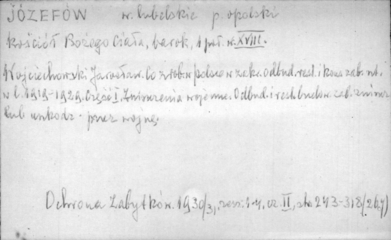 JÓZEFÓW w. lubelskie p. opolski
Kościół Bożego Ciała, barok, 1 poł. w. XVIII.
Wojciechowski Jarosław. Co zrobiono w Polsce w zakr. odbud. rest. i kons. zab. mb.
w l. 1919-1929. Część I. Zniszczenia wojenne. Odbud. i rest. budow. zab. zniszcz.
lub uszkodz. przez wojnę
Ochrona Zabytków. 1930/31, zesz. 1-4, cz. II, sta 243-318 /267/